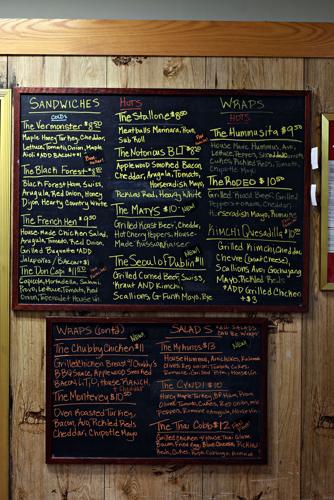 SANDWICHES
COLDS
The Vermonster $8.50
Maple Honey Turkey, Cheddar,
Lettuce, Tomato, Onion, Maple
Aioli *ADD BACON $1
Best Seller!
The Black Forest $8.50
Black Forest Ham, Swiss,
Arugula, Red Onion, Honey
Dijon, Hearty Country White
The French Hen $9.50
House-Made Chicken Salad,
Arugula, Tomato, Red Onion,
Grilled Baguette *ADD
Jalapeños / Bacon $1
The Don Capo $11.50
Capicola, Mortadella, Salami,
Provo, Lettuce, Tomato, Red
Onion, Pepperoncini House Vin.
HOTS
The Stallone $8.50
Meatballs Marinara, Provo,
Sub Roll
The Notorious BLT $8.50
Applewood Smoked Bacon
Cheddar, Arugula, Tomato,
Horseradish Mayo,
Pickled Red, Hearty White
The Matys $10 New!
Grilled Roast Beef, Cheddar,
Hot Cherry Peppers, House
Made Russian, Kaiser
The Seoul of Dublin $11
New!
Grilled Corned Beef, Swiss,
Kraut AND Kimchi,
Scallions, G-Funk Mayo, Rye
WRAPS
HOTS
The Hummusita $9.50
House Made Hummus, Avo,
Lettuce, Peppers, Shredded Carrots,
Cukes, Pickled Reds, Tomato,
Chipotle Mayo
The Rodeo $10.50
Grilled Roast Beef, Grilled
Peppers + Onions, Cheddar,
Horseradish Mayo, Romaine
Kimchi Quesadilla $10.50
Grilled Kimchi, Cheddar,
Chevre (goat cheese),
Scallions, Avo, Gochujang
Mayo, Pickled Reds
*ADD Grilled Chicken
+$3
WRAPS (contd)
New!
The Chubby Chicken $11
Grilled Chicken Breast w/ Chubby's
BBQ Sauce, Applewood Smoked
Bacon L,T,O, House RANCH
+ Cheddar
The Monterey $10.50
Oven Roasted Turkey,
Bacon, Avo, Pickled Reds
Cheddar, Chipotle Mayo
SALADS *ALL SALADS
CAN BE WRAPS*
The Mykonos $13 New!
House Hummus, Artichokes, Kalamata
olives, Red onion, Tomato, Cukes,
Romaine, Grilled Pita, House Vin
The CYNDI $10
Honey Maple Turkey, BF Ham, Provo
Olives, Tomato, Cukes, Red Onion,
Peppers, Romaine + Arugula, House Vin
The Thai Cobb $12
Grilled Chicken w/ House Thai Glaze,
Bacon, Fried Egg, Blue Cheese, Pickled
Reds, Cukes,